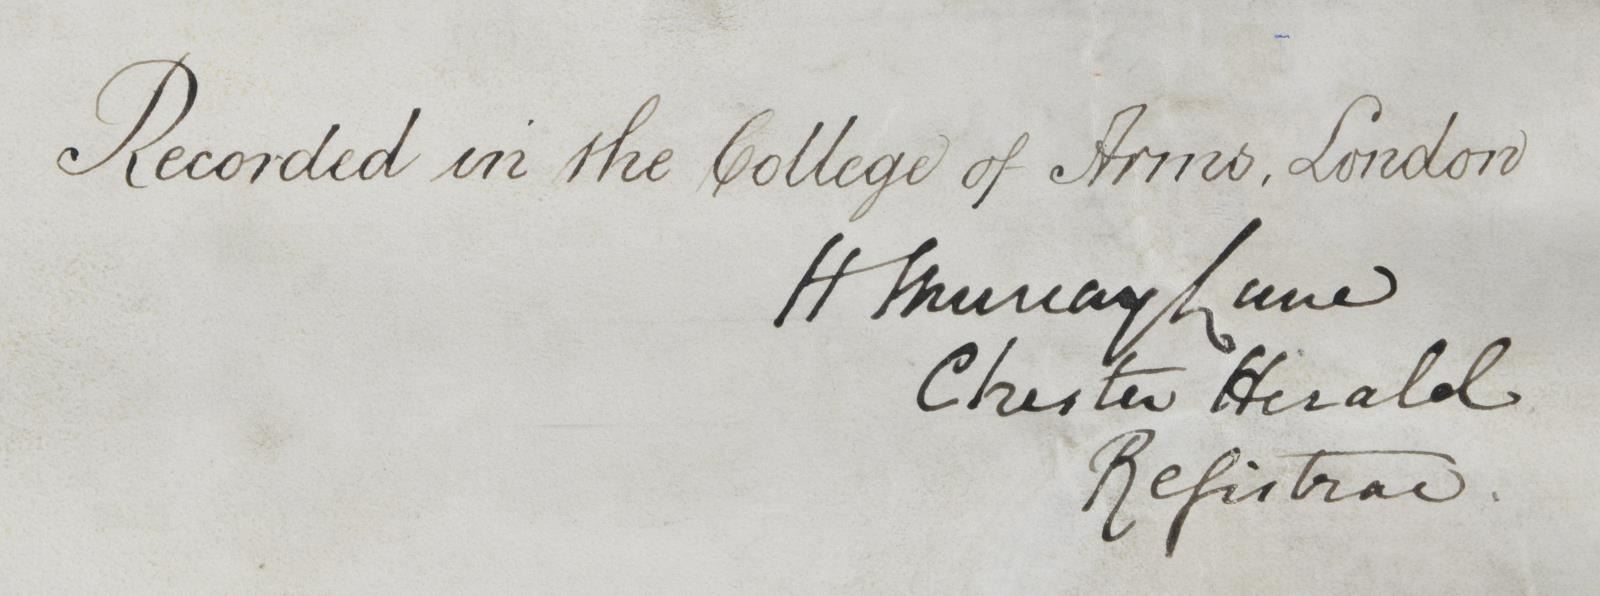 Recorded in the College of Arms, London
H Murray Lane
Chester Herald
Registrar.